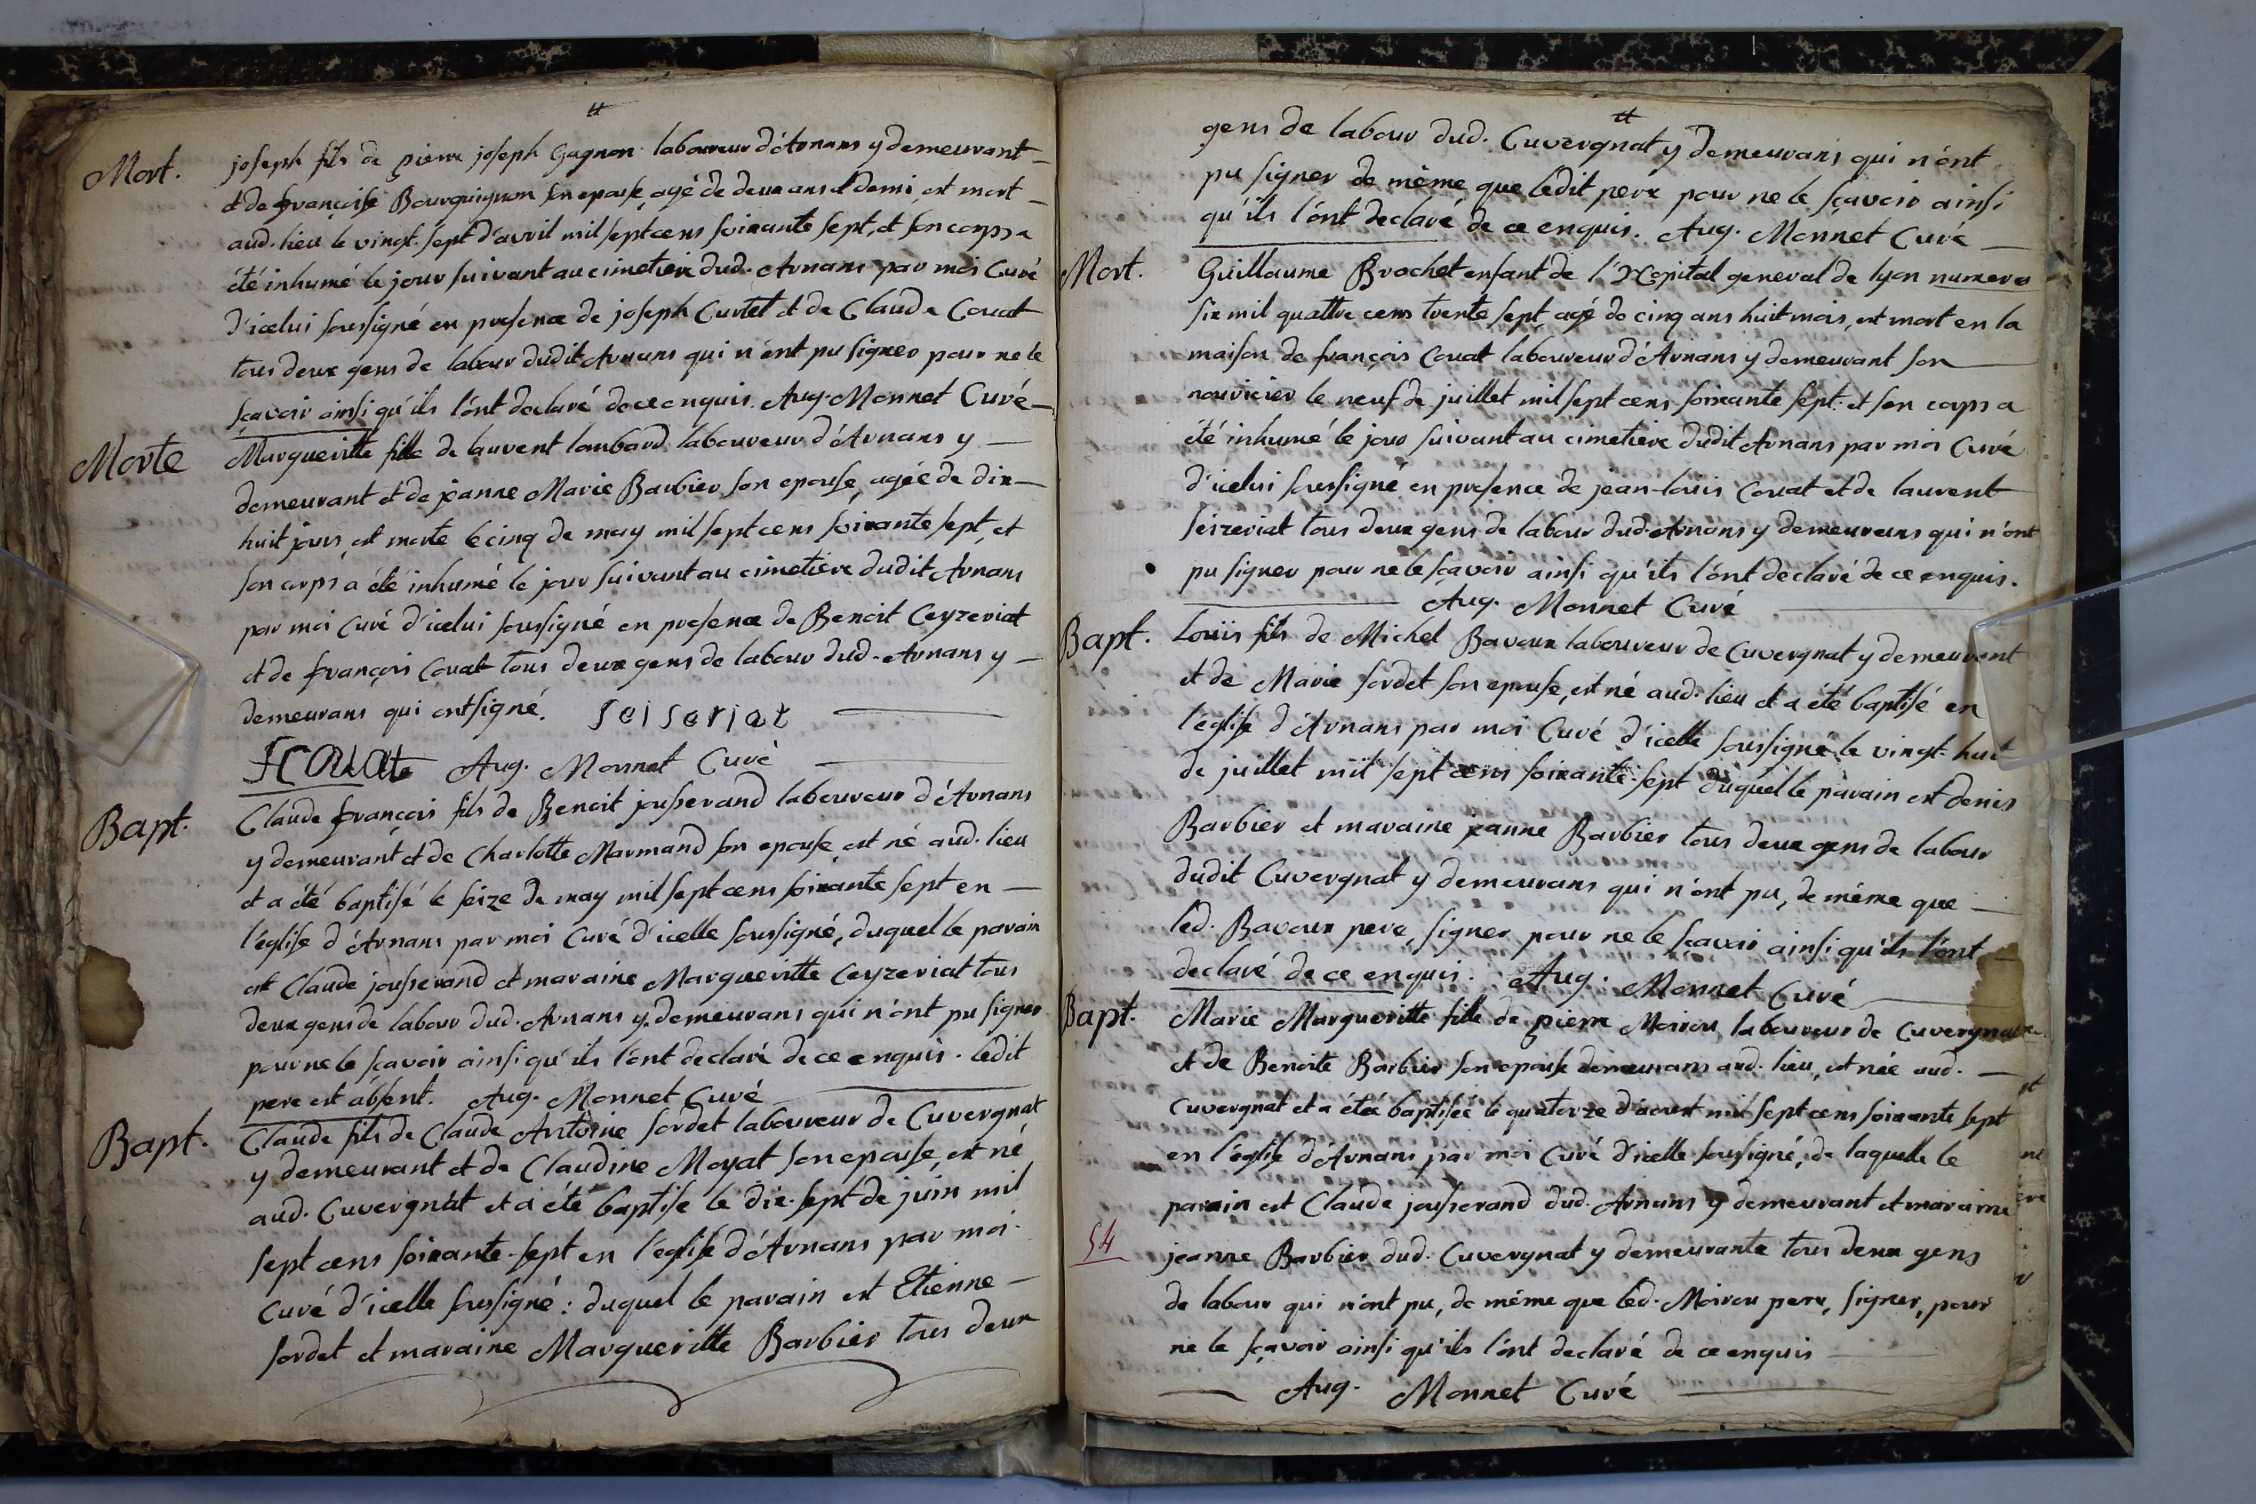 Mort.
joseph fils de pierre joseph Gagnon laboureur d'Arnans y demeurant
et de françoise Bourguignon son epouse, agé de deux ans et demi, est mort
aud. lieu le vingt-sept d'avril mil sept cens soixante sept, et son corps a
été inhumé le jour suivant au cimetiere dud. Arnans par moi Curé
d'icelui soussigné en presence de joseph Curtet et de Claude Couat
tous deux gens de labour dudit Arnans qui n'ont pu signer pour ne le
sçavoir ainsi qu'ils l'ont declaré de ce enquis. Aug. Monnet Curé
Morte
Margueritte fille de laurent lombard laboureur d'Arnans y
demeurant et de jeanne Marie Barbier son epouse, agée de dix
huit jours, est morte le cinq de may mil sept cens soixante sept, et
son corps a été inhumé le jour suivant au cimetiere dudit Arnans
par moi Curé d'icelui soussigné en presence de Benoit Ceyzeriat
et de françois Couat tous deux gens de labour dud. Arnans y
demeurans qui ont signé. Seiseriat
F Couat Aug. Monnet Curé
Bapt.
Claude françois fils de Benoit jousserand laboureur d'Arnans
y demeurant et de Charlotte Marmand son epouse, est né aud. lieu
et a été baptisé le seize de may mil sept cens soixante sept en
l'église d'Arnans par moi Curé d'icelle soussigné, duquel le parain
est Claude jousserand et maraine Margueritte Ceyzeriat tous
deux gens de labour dud. Arnans y demeurans qui n'ont pu signer
pour ne le sçavoir ainsi qu'ils l'ont declaré de ce enquis. ledit
pere est absent. Aug. Monnet Curé
Bapt.
Claude fils de Claude Antoine sordet laboureur de Cuvergnat
y demeurant et de Claudine Moyat son epouse, est né
aud. Cuvergnat et a été baptisé le dix-sept de juin mil
sept cens soixante-sept en l'église d'Arnans par moi
Curé d'icelle soussigné: duquel le parain est Etienne
sordet et maraine Margueritte Barbier tous deux
gens de labour dud. Cuvergnat y demeurans qui n'ont
pu signer de même que ledit pere pour ne le sçavoir ainsi
qu'ils l'ont declaré de ce enquis. Aug. Monnet Curé
Mort.
Guillaume Brochet enfant de l'Hopital general de lyon numero
six mil quattre cens trente sept, agé de cinq ans huit mois, est mort en la
maison de françois Couat laboureur d'Arnans y demeurant son
nouricier le neuf de juillet mil sept cens soixante sept. et son corps a
été inhumé le jour suivant au cimetiere dudit Arnans par moi Curé
d'icelui soussigné en presence de jean-louis Couat et de laurent
seizeriat tous deux gens de labour dud. Arnans y demeurans qui n'ont
pu signer pour ne le sçavoir ainsi qu'ils l'ont declaré de ce enquis.
Aug. Monnet Curé
Bapt.
Louïs fils de Michel Bavoux laboureur de Cuvergnat y demeurant
et de Marie sordet son epouse, est né aud. lieu et a été baptisé en
l'église d'Arnans par moi Curé d'icelle soussigné le vingt-huit
de juillet mil sept cens soixante-sept duquel le parain est denis
Barbier et maraine jeanne Barbier tous deux gens de labour
dudit Cuvergnat y demeurans qui n'ont pu, de même que
led. Bavoux pere, signer pour ne le sçavoir ainsi qu'ils l'ont
declaré de ce enquis. Aug. Monnet Curé
Bapt.
Marie Margueritte fille de pierre Moirou laboureur de Cuvergnat
et de Benoite Barbier son epouse demeurans aud. lieu, est née aud.
Cuvergnat et a étée baptisée le quatorze d'aoust mil sept cens soixante sept
en l'église d'Arnans par moi Curé d'icelle soussigné, de laquelle le
parain est Claude jousserand dud. Arnans y demeurant et maraine
54
jeanne Barbier dud. Cuvergnat y demeurante tous deux gens
de labour qui n'ont pu, de même que led. Moirou pere, signer, pour
ne le sçavoir ainsi qu'ils l'ont declaré de ce enquis
Aug. Monnet Curé